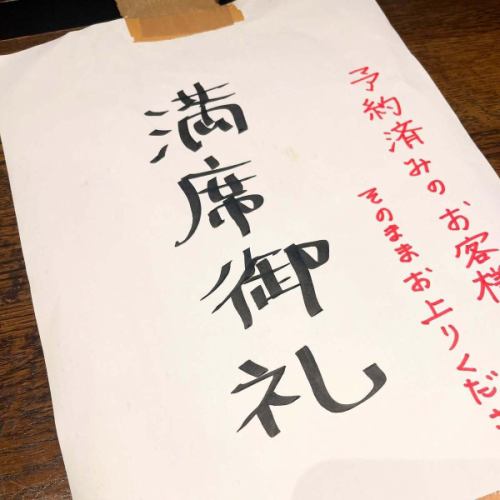 予約済みのお客様
そのままお上りくださ
満席御礼